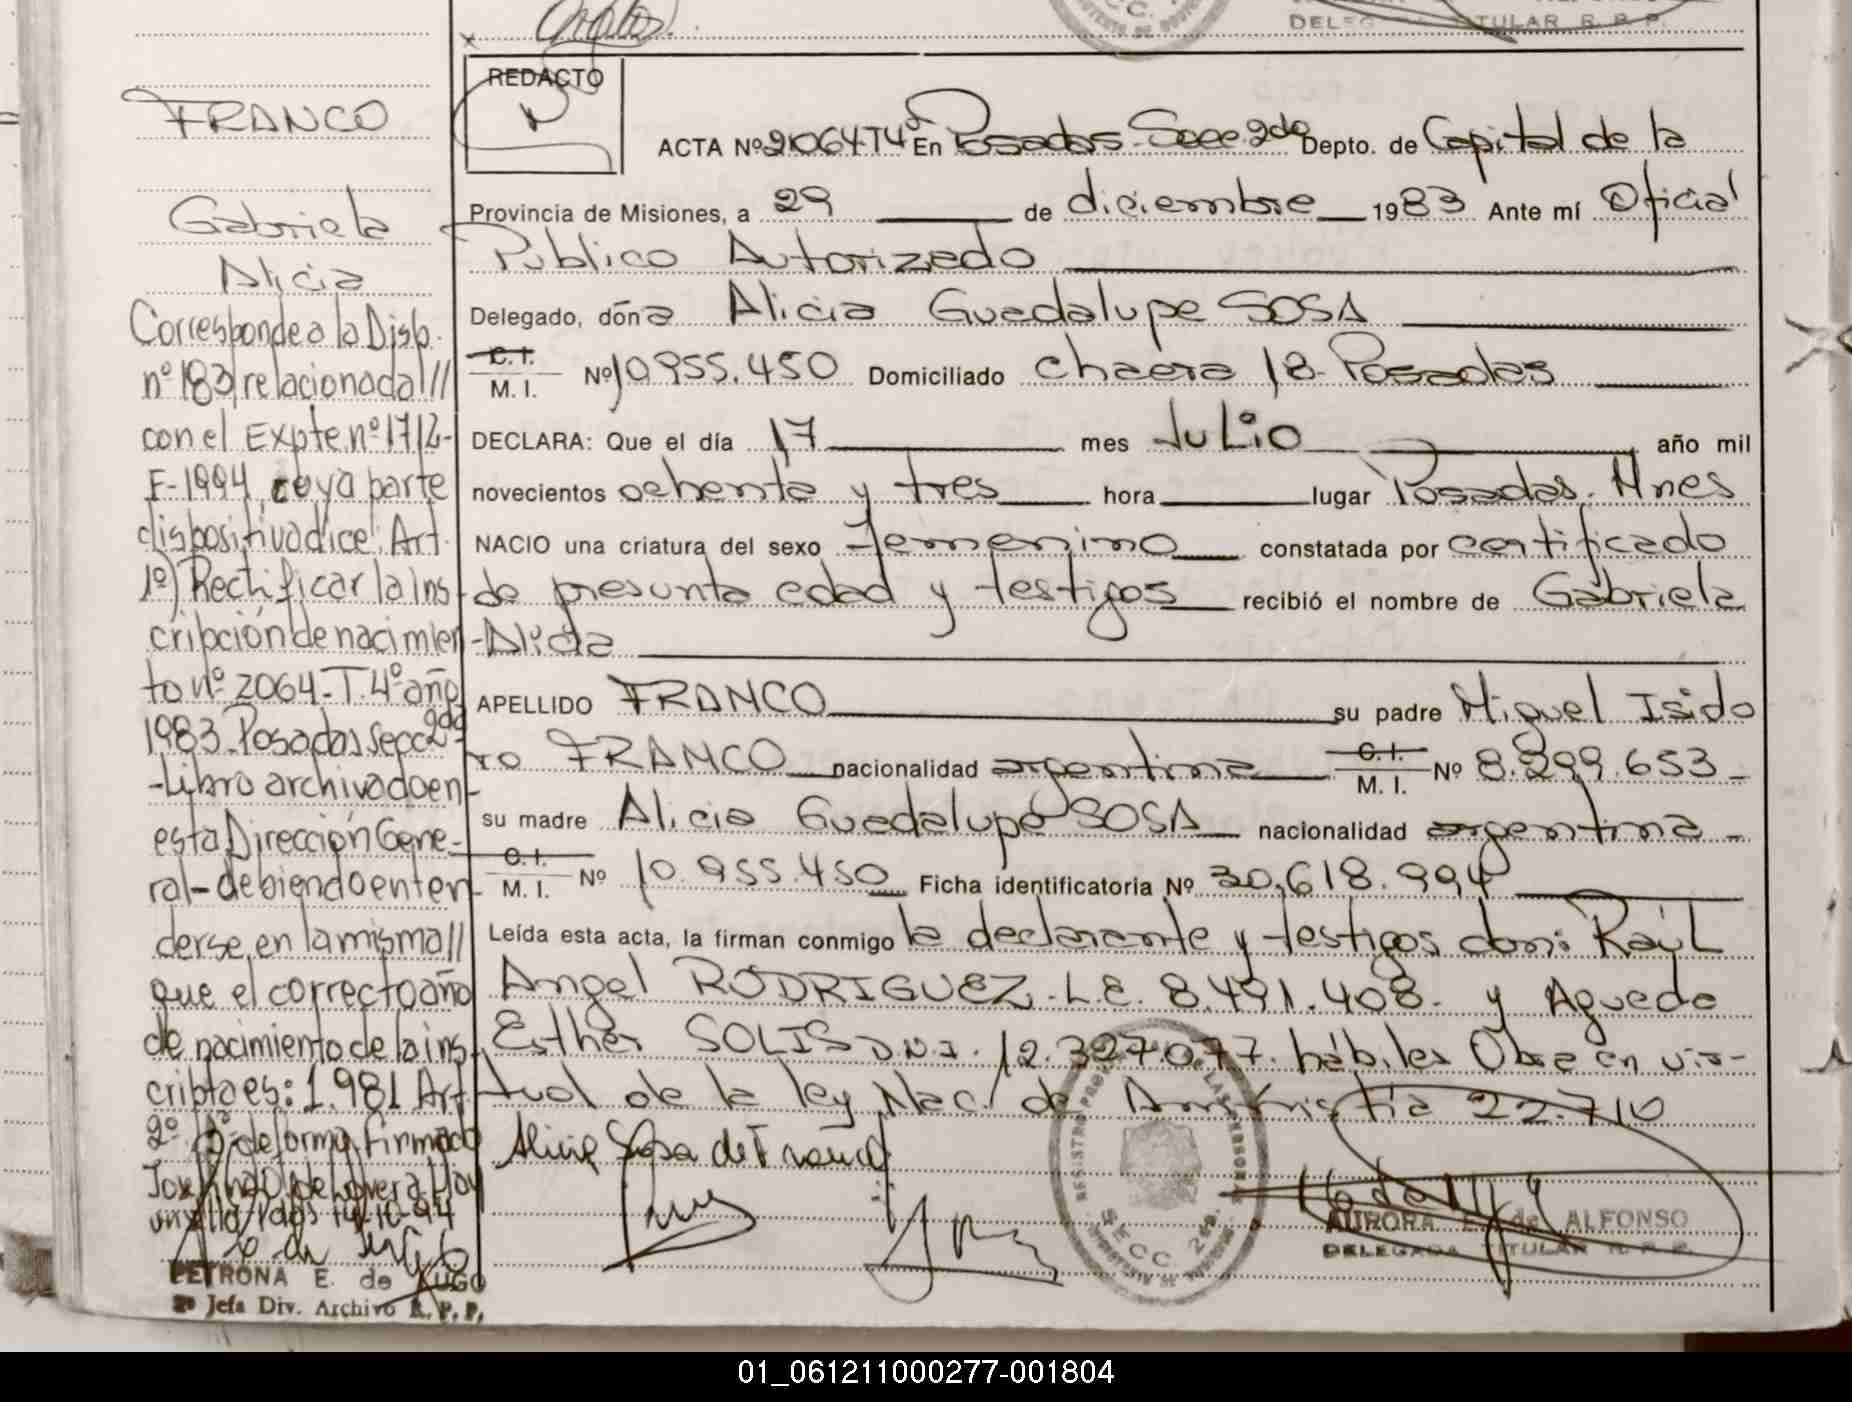 DELEGADA TITULAR R. P. P.
FRANCO
Gabriela
Alicia
Corresponde a la Disp.
nº 183 relacionada//
con el Expte. nº 1712-
F-1994, cuya parte
dispositiva dice: Art.
1º) Rectificar la ins-
cripción de nacimien-
to nº 2064-T.4º año
1983. Posadas Secc 2da
-Libro archivado en-
esta Dirección Gene-
ral- debiendo enten-
derse, en la misma//
que el correcto año
de nacimiento de la ins-
cripta es: 1.981 Art
2º de forma. Firmado
14-10-94
PETRONA E. de LUGO
2º Jefa Div. Archivo R. P. P.
REDACTO
ACTA Nº 2064T4º En Posadas-Secc. 2da Depto. de Capital de la
Provincia de Misiones, a 29 de diciembre 1983 Ante mí Oficial
Publico Autorizado
Delegado, dóna Alicia Guadalupe SOSA
C. I.
M. I. Nº 10.955.450 Domiciliado chacra 18- Posadas
DECLARA: Que el día 17 mes JuLio año mil
novecientos ochenta y tres hora lugar Posadas. Mnes
NACIO una criatura del sexo femenino constatada por certificado
de presunta edad y testigos recibió el nombre de Gabriela
-Alicia
APELLIDO FRANCO su padre Miguel Isido
ro FRANCO nacionalidad argentina C. I. M. I. Nº 8.299.653-
su madre Alicia Guadalupe SOSA nacionalidad argentina-
C. I.
M. I. Nº 10.955.450 Ficha identificatoria Nº 30.618.994
Leída esta acta, la firman conmigo la declarante y testigos don: Raúl
Angel RODRIGUEZ-L.E. 8.491.408- y Agueda
Esther SOLIS D.N.I. 12.327.077. hábiles Obra en vir-
tud de la ley Nac. de Amnistia 22.710
Alicia Sosa de Franco
REGISTRO PROVINCIAL DE LAS PERSONAS
SECC. 2da.
AURORA E. de ALFONSO
DELEGADA TITULAR R. P. P.
01_061211000277-001804